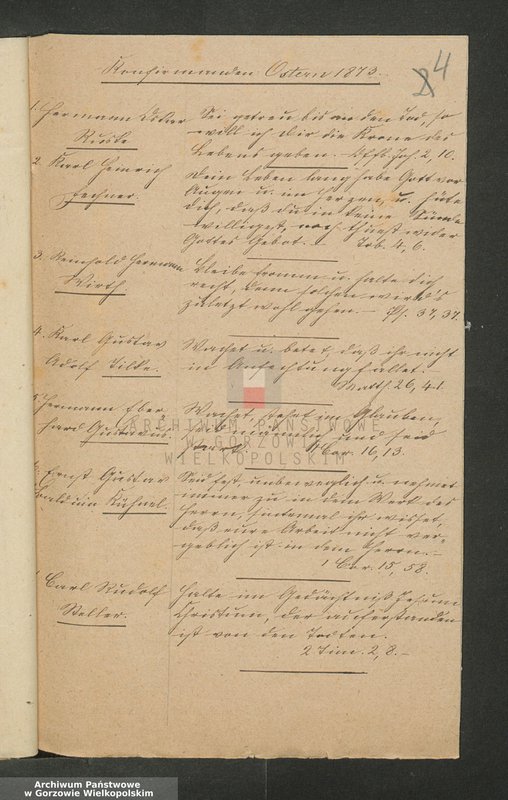 Konfirmanden Ostern 1873.
4
1. Hermann
Sei getreu bis an den Tod, so
will ich dir die Krone des
Lebens geben. Offb. Joh. 2, 10.
2. Karl Heinrich
Fechner.
Dein Leben lang habe Gott vor
Augen u. im Herzen, u. hüte
dich, daß du in keine Sünde
willigest, noch thuest wider
Gottes Gebot. Tob. 4, 6.
3. Reinhold Hermann
Wirth.
Bleibe fromm u. halte dich
recht, denn solchen wird's
zuletzt wohl gehen. - Ps. 37, 37.
4. Karl Gustav
Adolf Tilke.
Wachet u. betet, daß ihr nicht
in Anfechtung fallet. -
Matth. 26, 41.
5. Hermann Eber-
hard
Wachet, stehet im Glauben,
seid männlich und seid
stark. 1 Cor. 16, 13.
6. Ernst Gustav
Balduin Kühnel.
Seid fest unbeweglich u. nehmet
immer zu in dem Werk des
Herrn, sintemal ihr wisset,
daß eure Arbeit nicht ver-
geblich ist in dem Herrn. -
1 Cor. 15, 58.
Carl Rudolf
Steller.
Halte im Gedächtniß Jesum
Christum, der auferstanden
ist von den Todten.
2 Tim. 2, 8. -
ARCHIWUM PAŃSTWOWE
W GORZOWIE
WIELKOPOLSKIM
Archiwum Państwowe
w Gorzowie Wielkopolskim